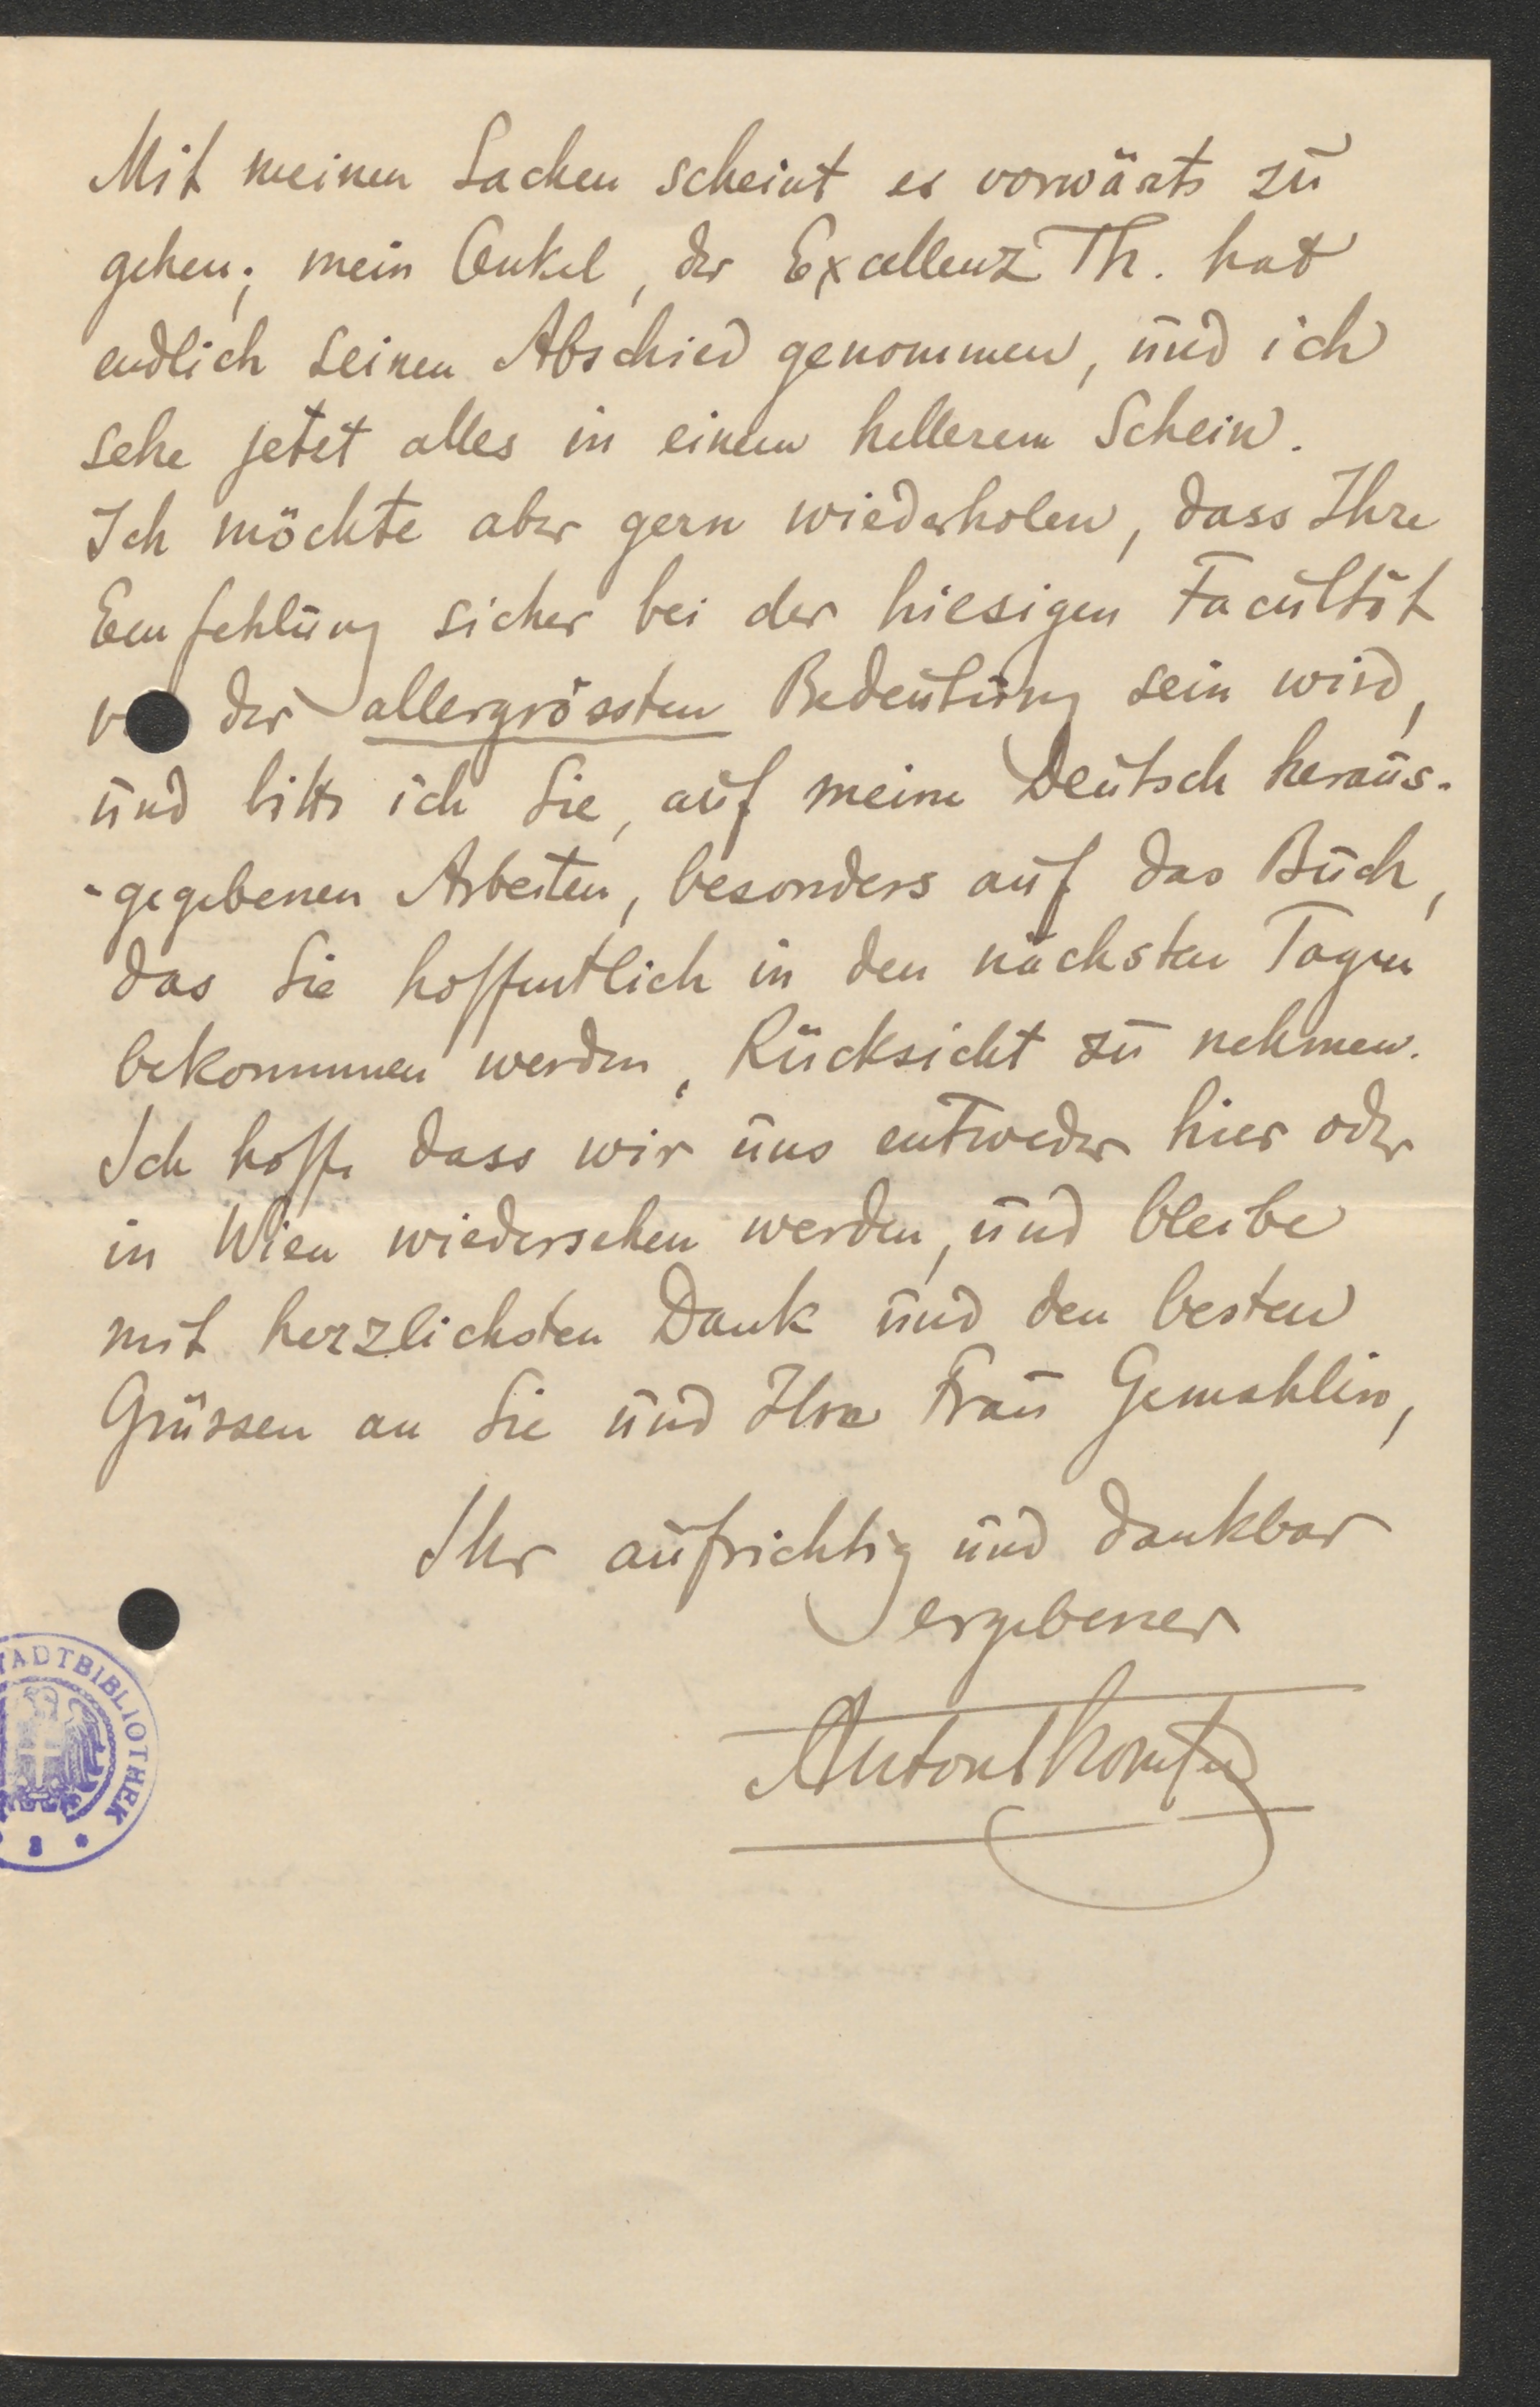 Mit meinen Sachen scheint es vorwärts zu
gehen; mein Onkel, der Excellenz Th. hat
endlich seinen Abschied genommen, und ich
sehe jetzt alles in einem hellerem Schein.
Ich möchte aber gern wiederholen, dass Ihre
Emfehlung sicher bei der hiesigen Facultät
der allergrössten Bedeutung sein wird,
und bitte ich Sie, auf meine Deutsch heraus-
-gegebenen Arbeiten, besonders auf das Buch,
das Sie hoffentlich in den nächsten Tagen
bekommen werden, Rücksicht zu nehmen.
Ich hoffe dass wir uns entweder hier oder
in Wien wiedersehen werden, und bleibe
mit herzlichsten Dank und den besten
Grüssen an Sie und Ihre Frau Gemahlin,
Ihr aufrichtig und dankbar
ergebener
TADTBIBLIOTHEK